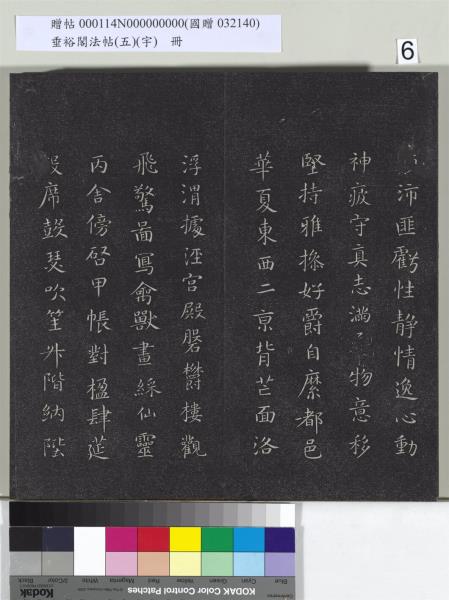 贈帖 000114N000000000(國贈 032140)
垂裕閣法帖(五)(宇) 冊
6
沛匪虧性静情逸心動
神疲守真志滿物意移
堅持雅操好爵自縻都邑
華夏東西二京背芒面洛
浮渭據涇宮殿磐欝樓觀
飛驚啚寫禽獸畫綵仙靈
丙舍傍啓甲帳對楹肆莚
設席鼓瑟吹笙升階納陛
Blue Cyan Green Yellow Red Magenta White 3/Color Black
Kodak
KODAK Color Control Patches